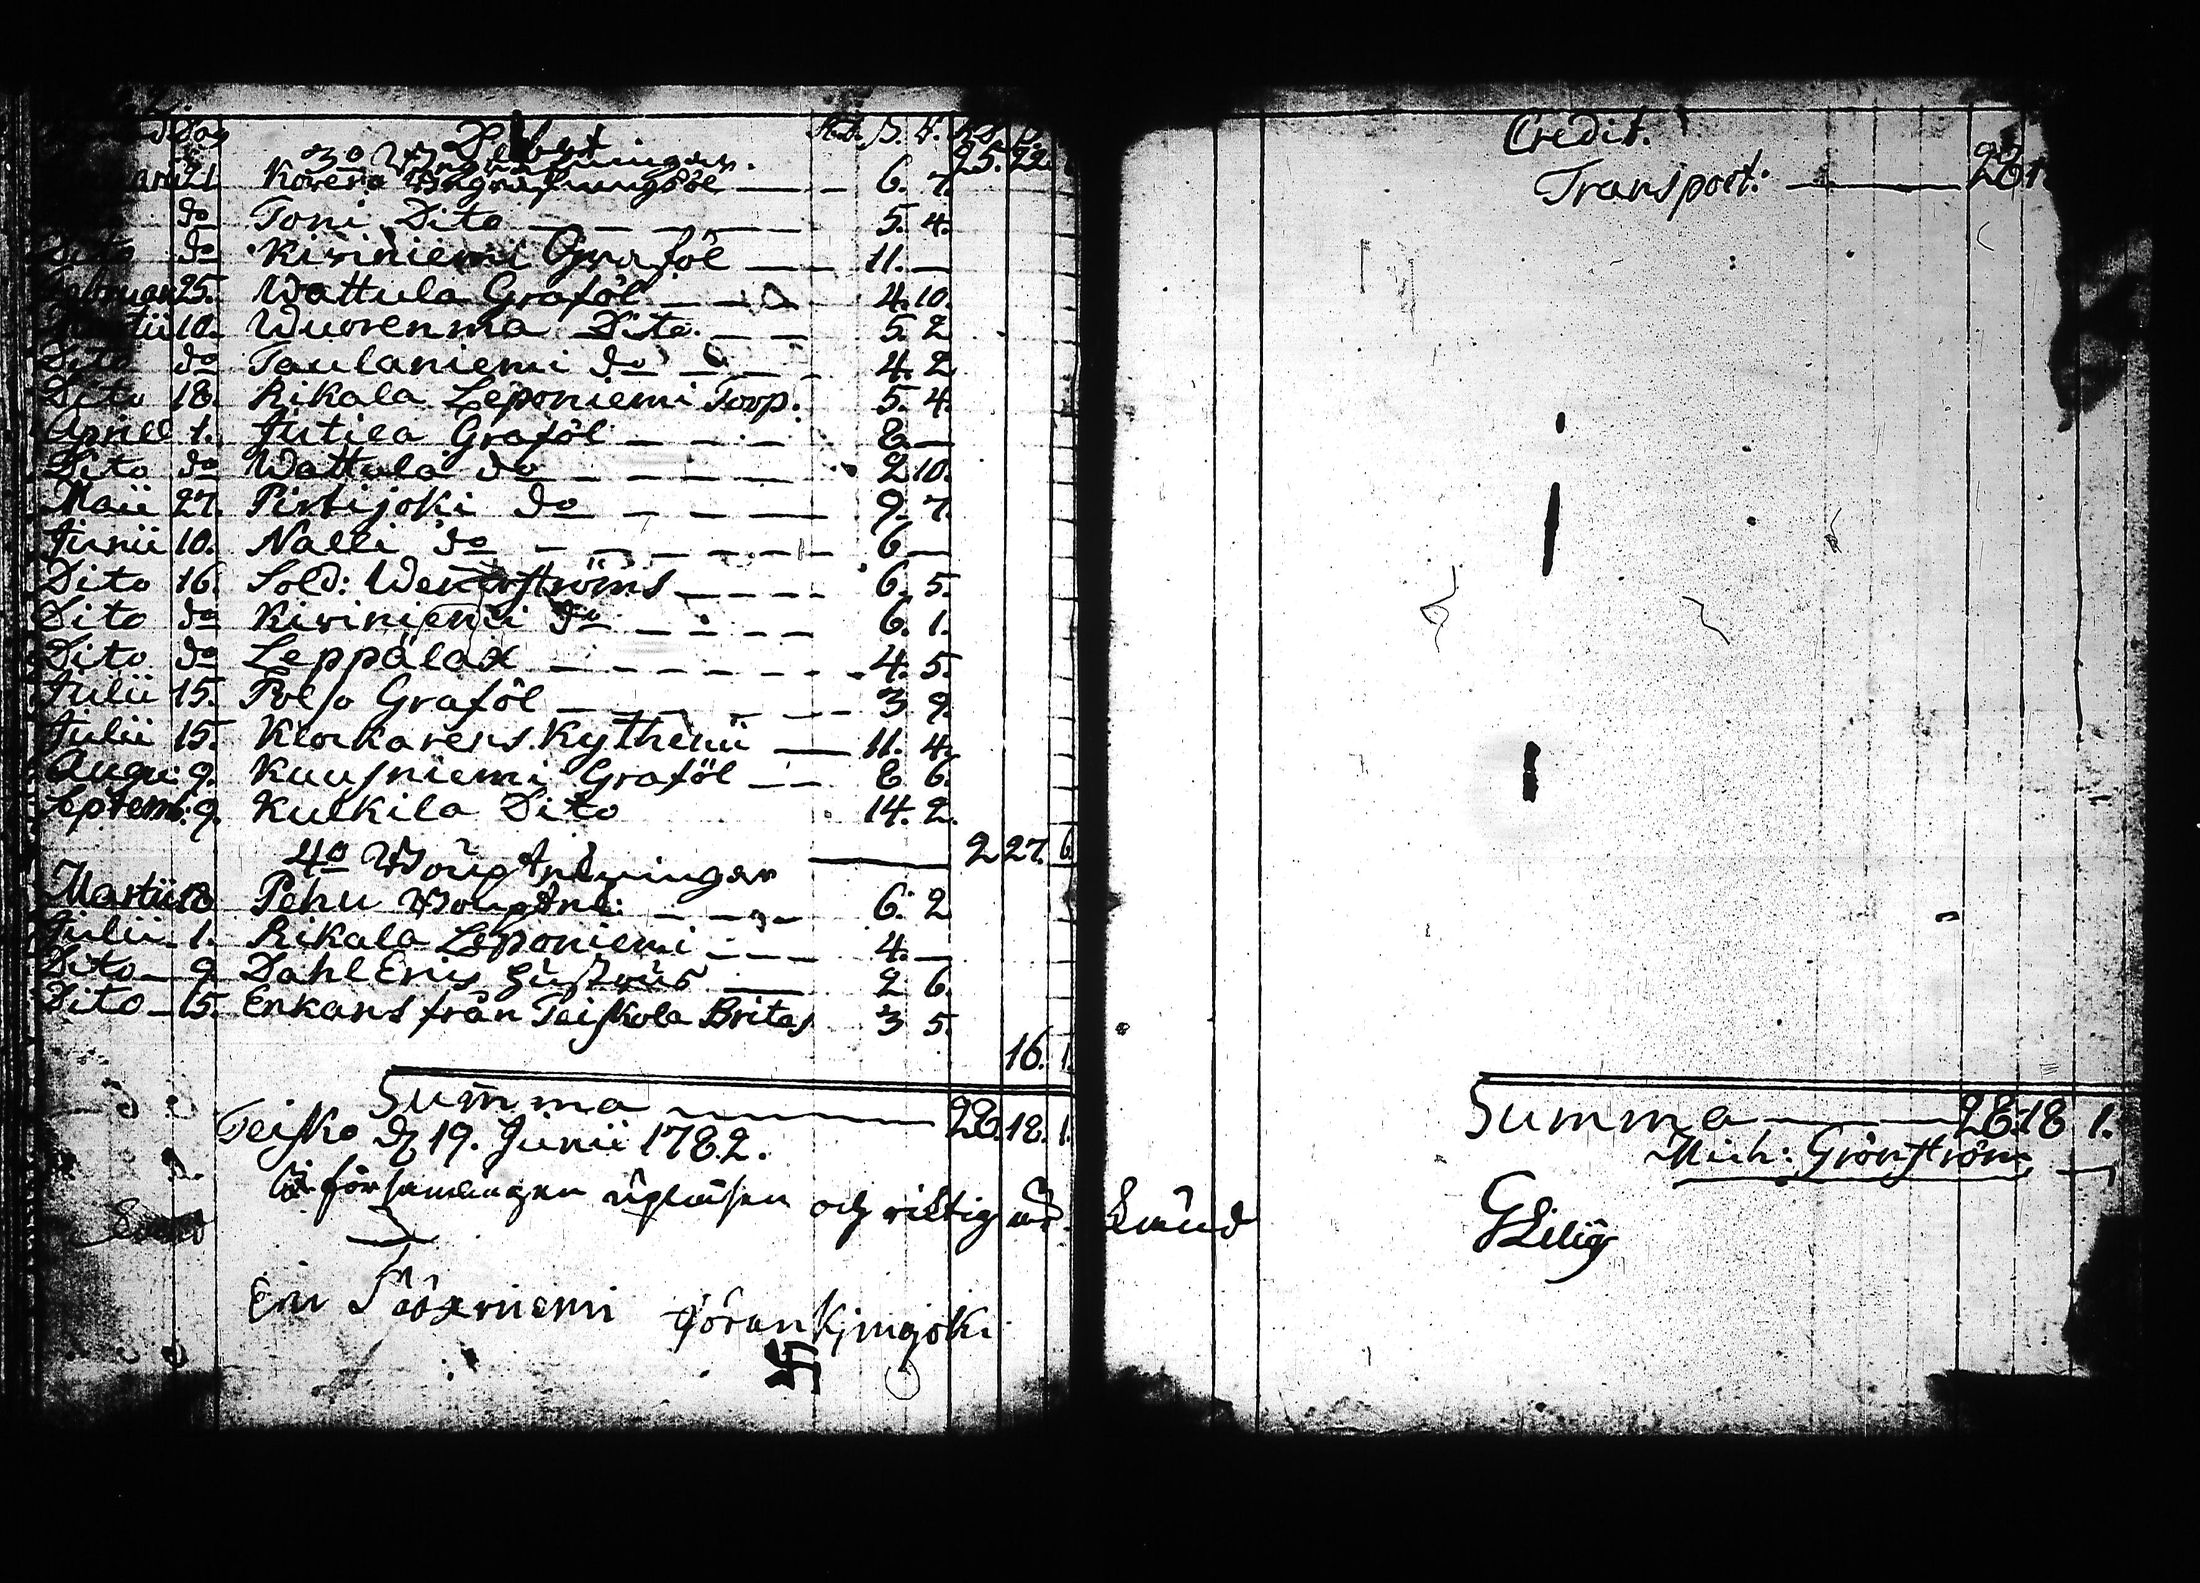 Dag Debet Rd. S. r. Rd. S.
3o Begrafningar. 25. 22.
21 Kovero Begrafningsöl 6. 7.
do Toni Dito 5. 4.
Dito do Kiviniemi Graföl 11. —
25. Wattula Graföl 4. 10.
Martii 10. Wuorenma Dito 5. 2
Dito do Taulaniemi do 4. 2
Dito 18. Rikala Leponiemi Torp. 5. 4.
Aprill 1. Jutila Graföl 8. —
Dito do Wattula do 2 10.
Maii 27. Pirtijoki do 9. 7.
Junii 10. Nalli do 6 —
Dito 16. Sold: Wennerströms 6. 5.
Dito do Kiviniemi do 6. 1.
Dito do Leppälax 4. 5.
Julii 15. Polso Graföl 3 9.
Julii 15. Klockarens Kythenii 11. 4.
Augu: 9. Kuusniemi Graföl 8 6.
Septem: 9. Kulkila Dito 14. 2.
4o Bröllop 2 27. 6
Martii 18 Pehu 6. 2
Julii 1. Rikala Leponiemi 4. —
Dito 9. Dahl Eris Hustrus 2 6.
Dito 15. Enkans från Teiskola Britas 3 5.
16. 1.
Summa 28. 18. 1.
Teisko d 19. Junii 1782.
för församlingen upläsen och riktig
Göran Kjmajoki
卐
Credit.
Transport: 28
Summa 28. 18 1.
Mich: Grönström
GLilius